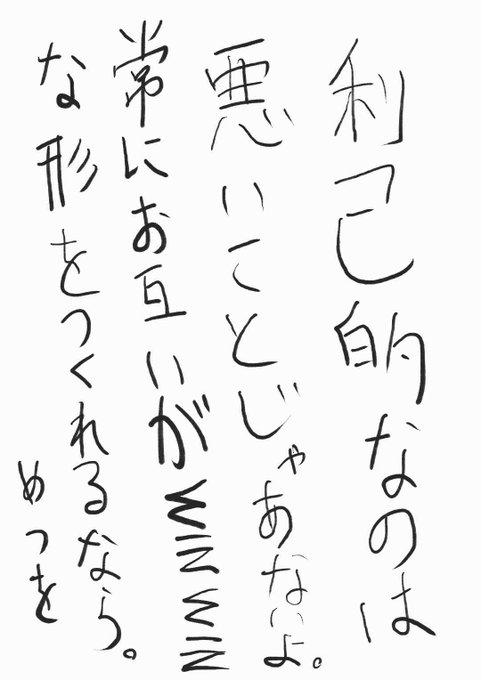 利己的なのは
悪いことじゃあないよ。
常にお互いがWINWIN
な形をつくれるなら。
めつを